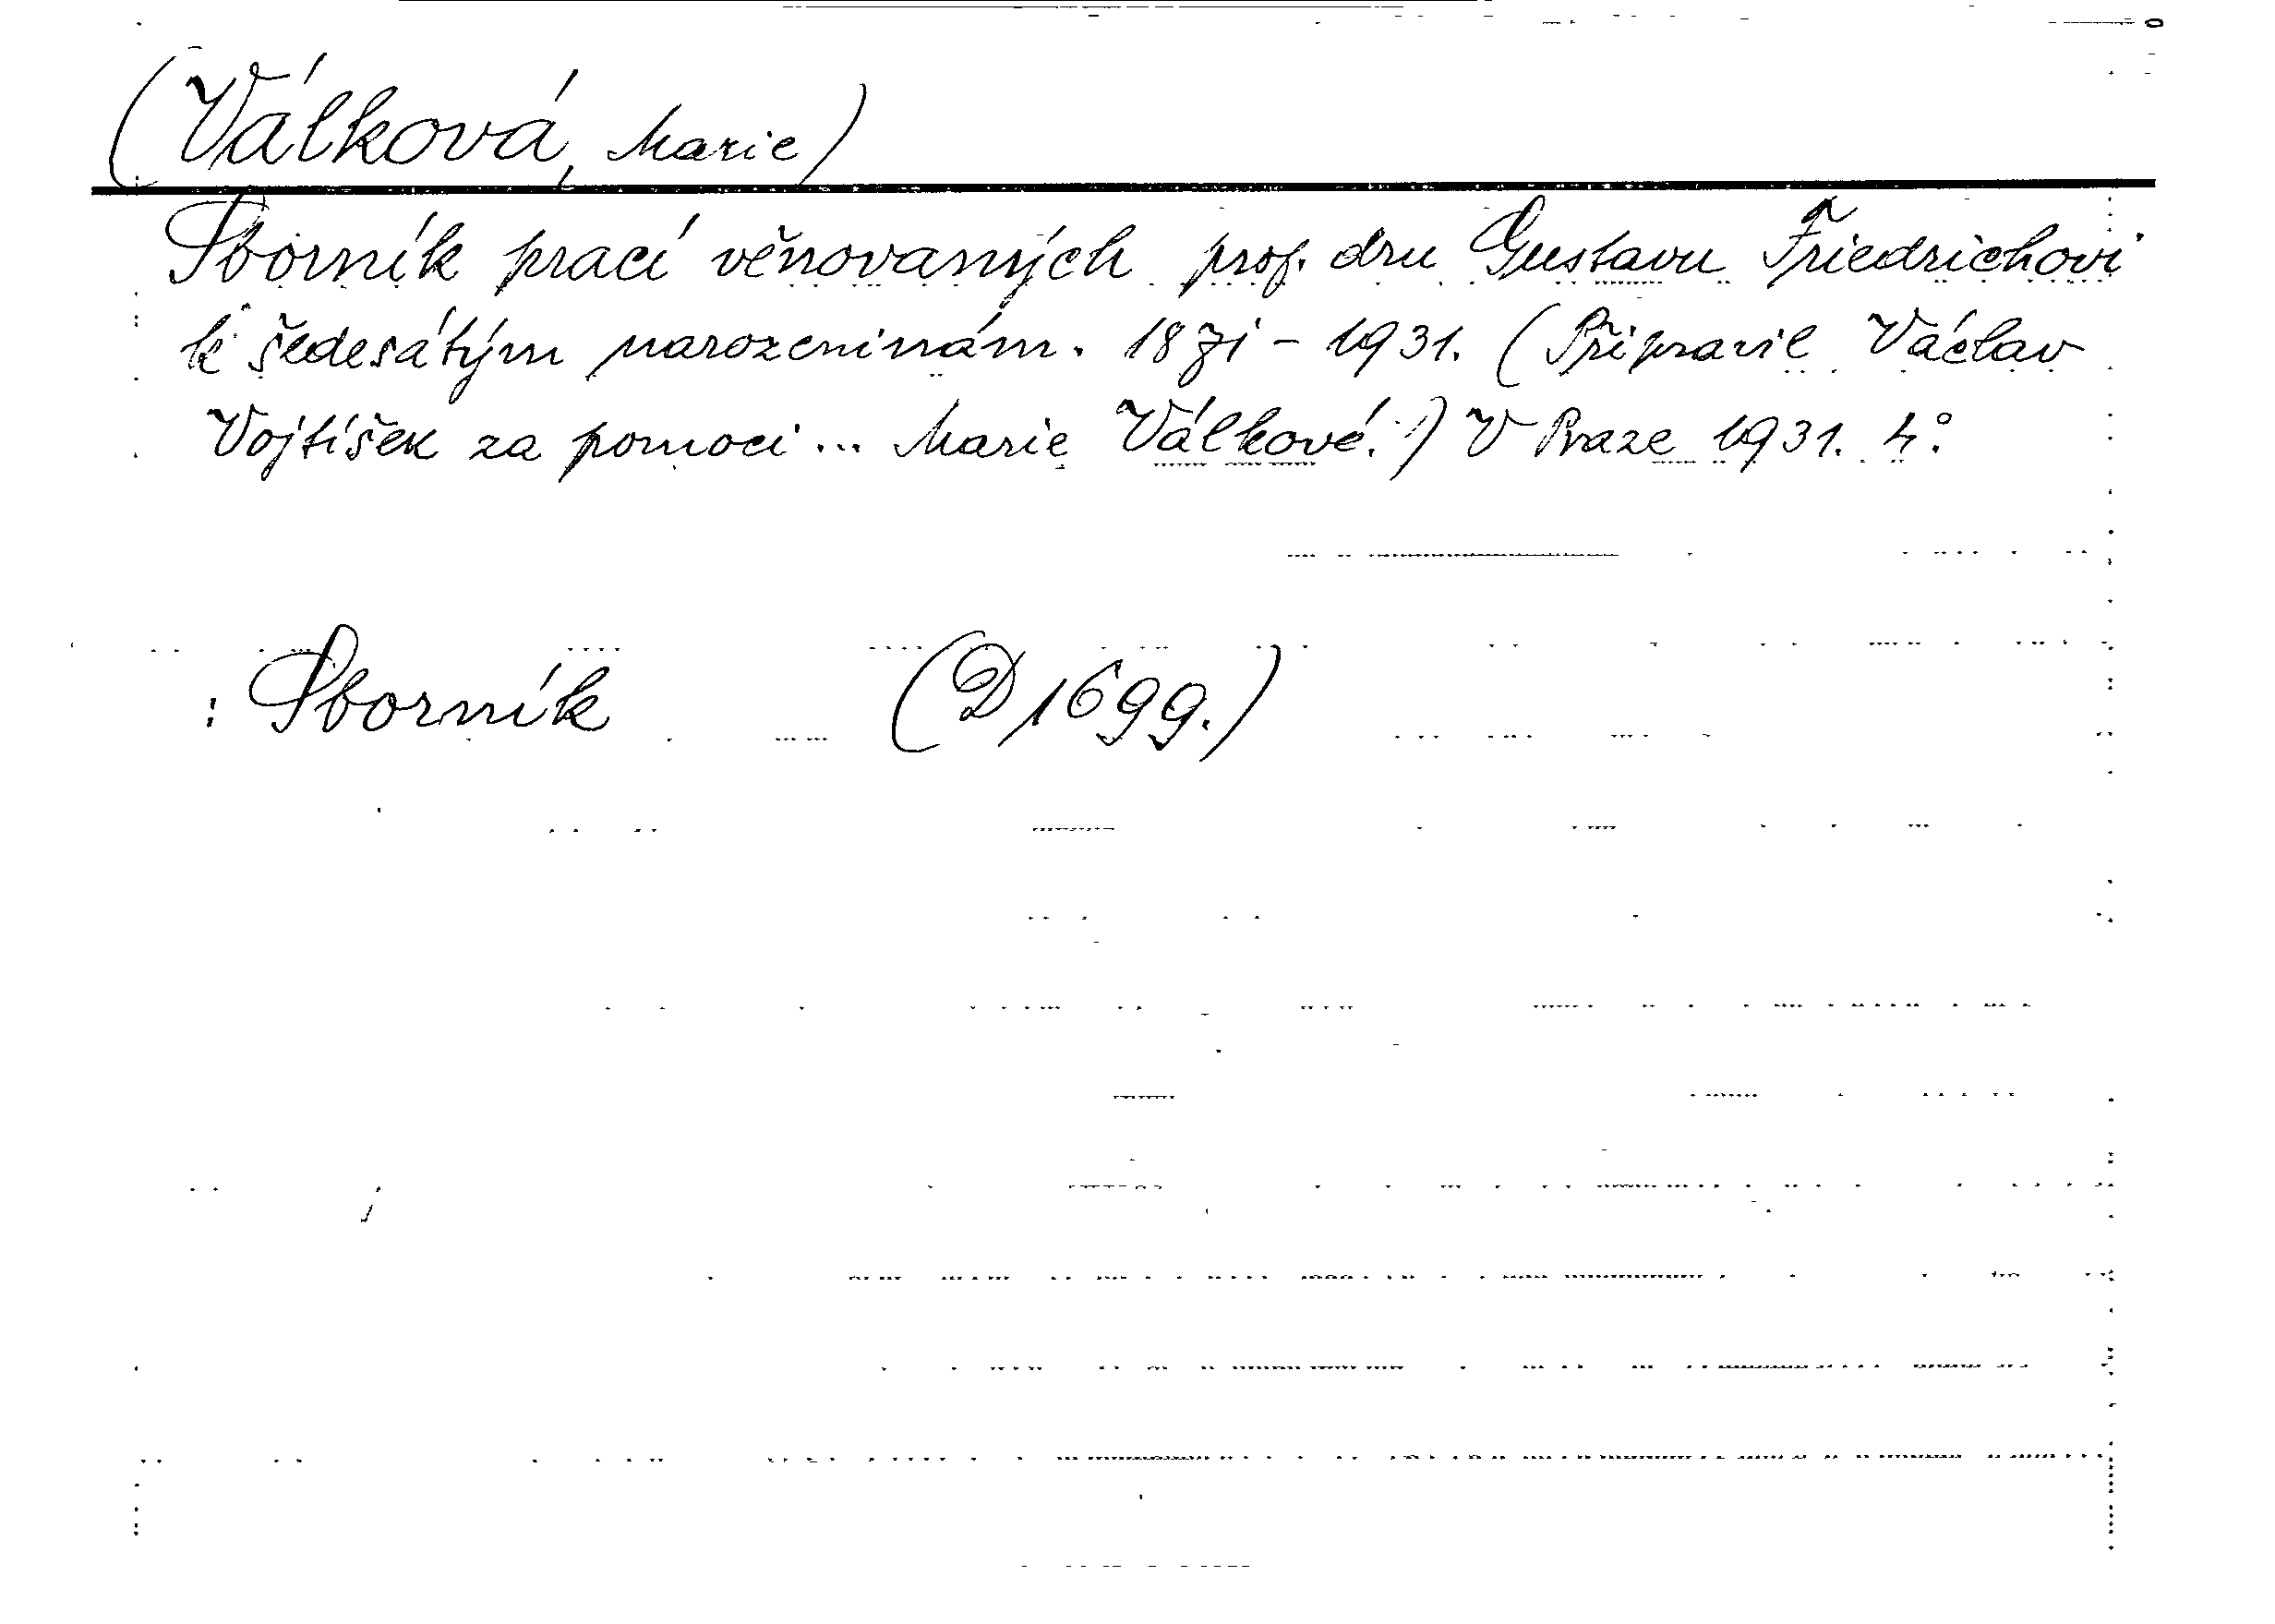 (Válková, Marie)
Sborník prací věnovaných prof. dru Gustavu Friedrichovi
k šedesátým narozeninám. 1871 - 1931. (Připravil Václav
Vojtíšek za pomoci ... Marie Válkové.) V Praze 1931. 4°.
: Sborník (D 1699.)